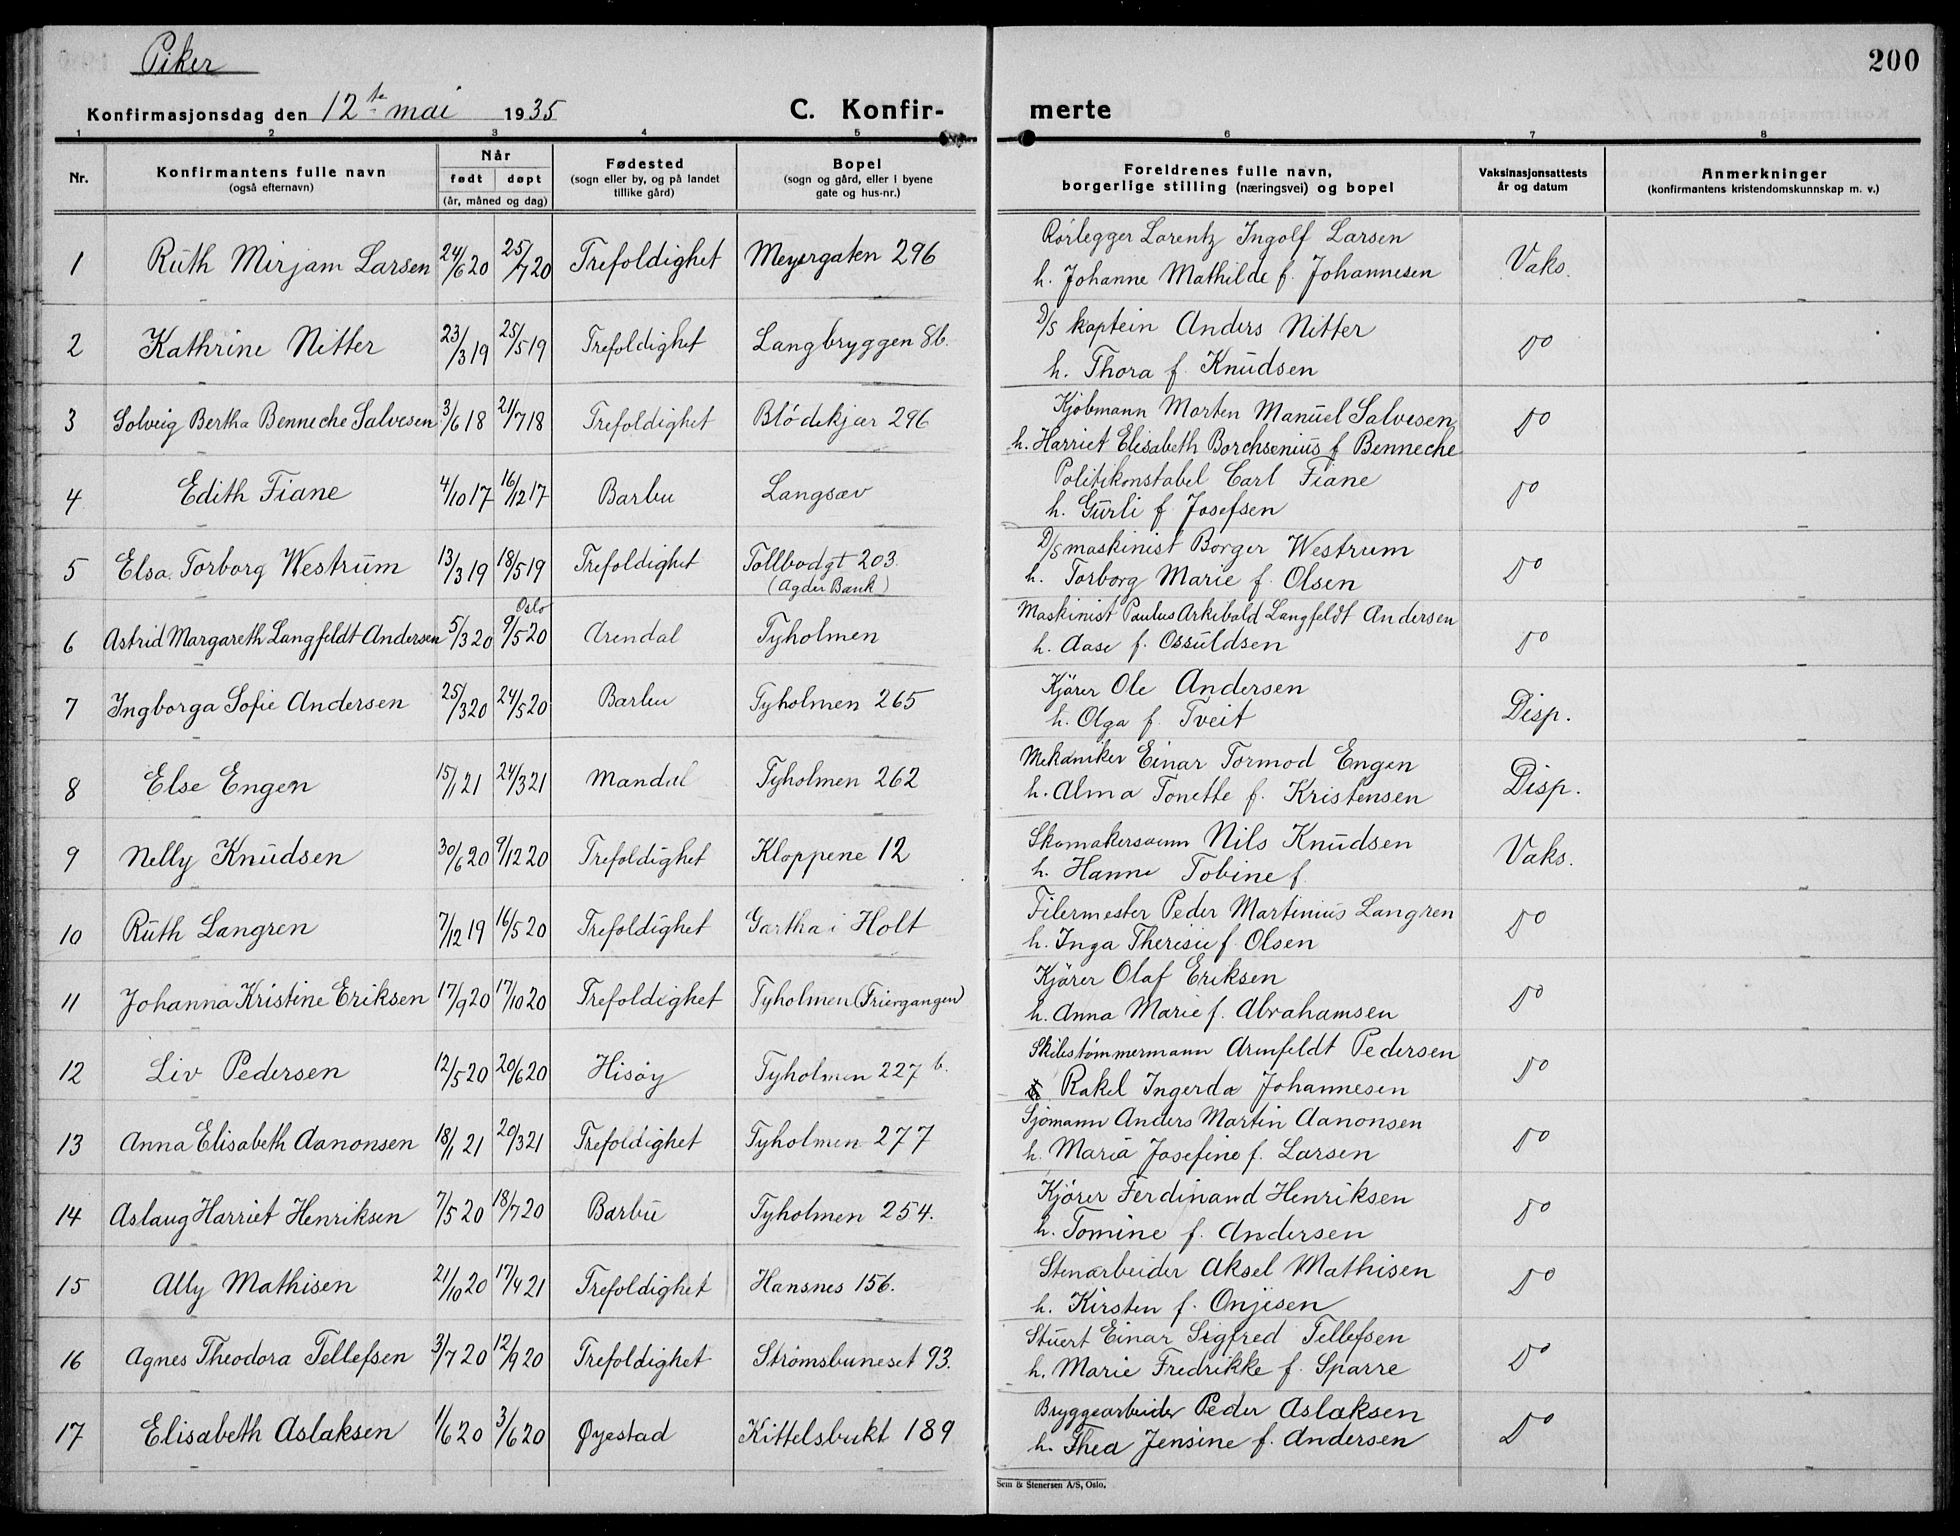 Piker
200
Konfirmasjonsdag den 12te mai 1935 C. Konfirmerte
1 2 3 4 5 6 7 8
Nr. Konfirmantens fulle navn (også efternavn) Når født døpt (år, måned og dag) Fødested (sogn eller by, og på landet tillike gård) Bopel (sogn og gård, eller i byene gate og hus-nr.) Foreldrenes fulle navn, borgerlige stilling (næringsvei) og bopel Vaksinasjonsattests år og datum Anmerkninger (konfirmantens kristendomskunnskap m. v.)
1 Ruth Mirjam Larsen 24/6 20 25/7 20 Trefoldighet Meyergaten 296 Rørlegger Lorentz Ingolf Larsen Vaks.
h. Johanne Mathilde f. Johannesen
2 Kathrine Nitter 23/3 19 25/5 19 Trefoldighet Langbryggen 8b. D/S kaptein Anders Nitter Do
h. Thora f. Knudsen
3 Solveig Bertha Benneche Salvesen 3/6 18 21/7 18 Trefoldighet Blødekjær 296 Kjøbmann Morten Manuel Salvesen Do
h. Harriet Elisabeth Borchsenius f Benneche
4 Edith Fiane 4/10 17 16/12 17 Barbu Langsæv Politikonstabel Carl Fiane Do
h. Gurli f Josefsen
5 Elsa Torborg Westrum 13/3 19 18/5 19 Trefoldighet Tollbodgt 203. (Agder Bank) D/S maskinist Borger Westrum Do
h. Torborg Marie f. Olsen
6 Astrid Margareth Langfeldt Andersen 5/3 20 Oslo 9/5 20 Arendal Tyholmen Maskinist Paulus Arkibald Langfeldt Andersen Do
h. Aase f. Ossuldsen
7 Ingborga Sofie Andersen 25/3 20 24/5 20 Barbu Tyholmen 265 Kjører Ole Andersen Disp.
h. Olga f. Tveit
8 Else Engen 15/1 21 24/3 21 Mandal Tyholmen 262 Mekaniker Einar Tormod Engen Disp.
h. Alma Tonette f. Kristensen
9 Nelly Knudsen 30/6 20 9/12 20 Trefoldighet Kloppene 12 Skomakersvenn Nils Knudsen Vaks.
h. Hanne Tobine f.
10 Ruth Langren 7/12 19 16/5 20 Trefoldighet Gartha i Holt Filermester Peder Martinius Langren Do
h. Inga Therisie f. Olsen
11 Johanna Kristine Eriksen 17/9 20 17/10 20 Trefoldighet Tyholmen (Friergangen) Kjører Olaf Eriksen Do
h. Anna Marie f. Abrahamsen
12 Liv Pedersen 12/5 20 20/6 20 Hisøy Tyholmen 227 b. Skibstømmermann Arnfeldt Pedersen Do
Rakel Ingerda Johannesen
13 Anna Elisabeth Aanonsen 18/1 21 20/3 21 Trefoldighet Tyholmen 277 Sjømann Anders Martin Aanonsen Do
h. Maria Josefine f. Larsen
14 Aslaug Harriet Henriksen 7/5 20 18/7 20 Barbu Tyholmen 254. Kjører Ferdinand Henriksen Do
h. Tomine f. Andersen
15 Ally Mathisen 21/10 20 17/4 21 Trefoldighet Hansnes 156. Stenarbeider Aksel Mathisen Do
h. Kirsten f. Onjesen
16 Agnes Theodora Tellefsen 3/7 20 12/9 20 Trefoldighet Strømsbuneset 93. Stuert Einar Sigfred Tellefsen Do
h. Marie Fredrikke f. Sparre
17 Elisabeth Aslaksen 1/6 20 3/6 20 Øyestad Kittelsbukt 189 Bryggearbeider Peder Aslaksen Do
h. Thea Jensine f. Andersen
Sem & Stenersen A/S, Oslo.